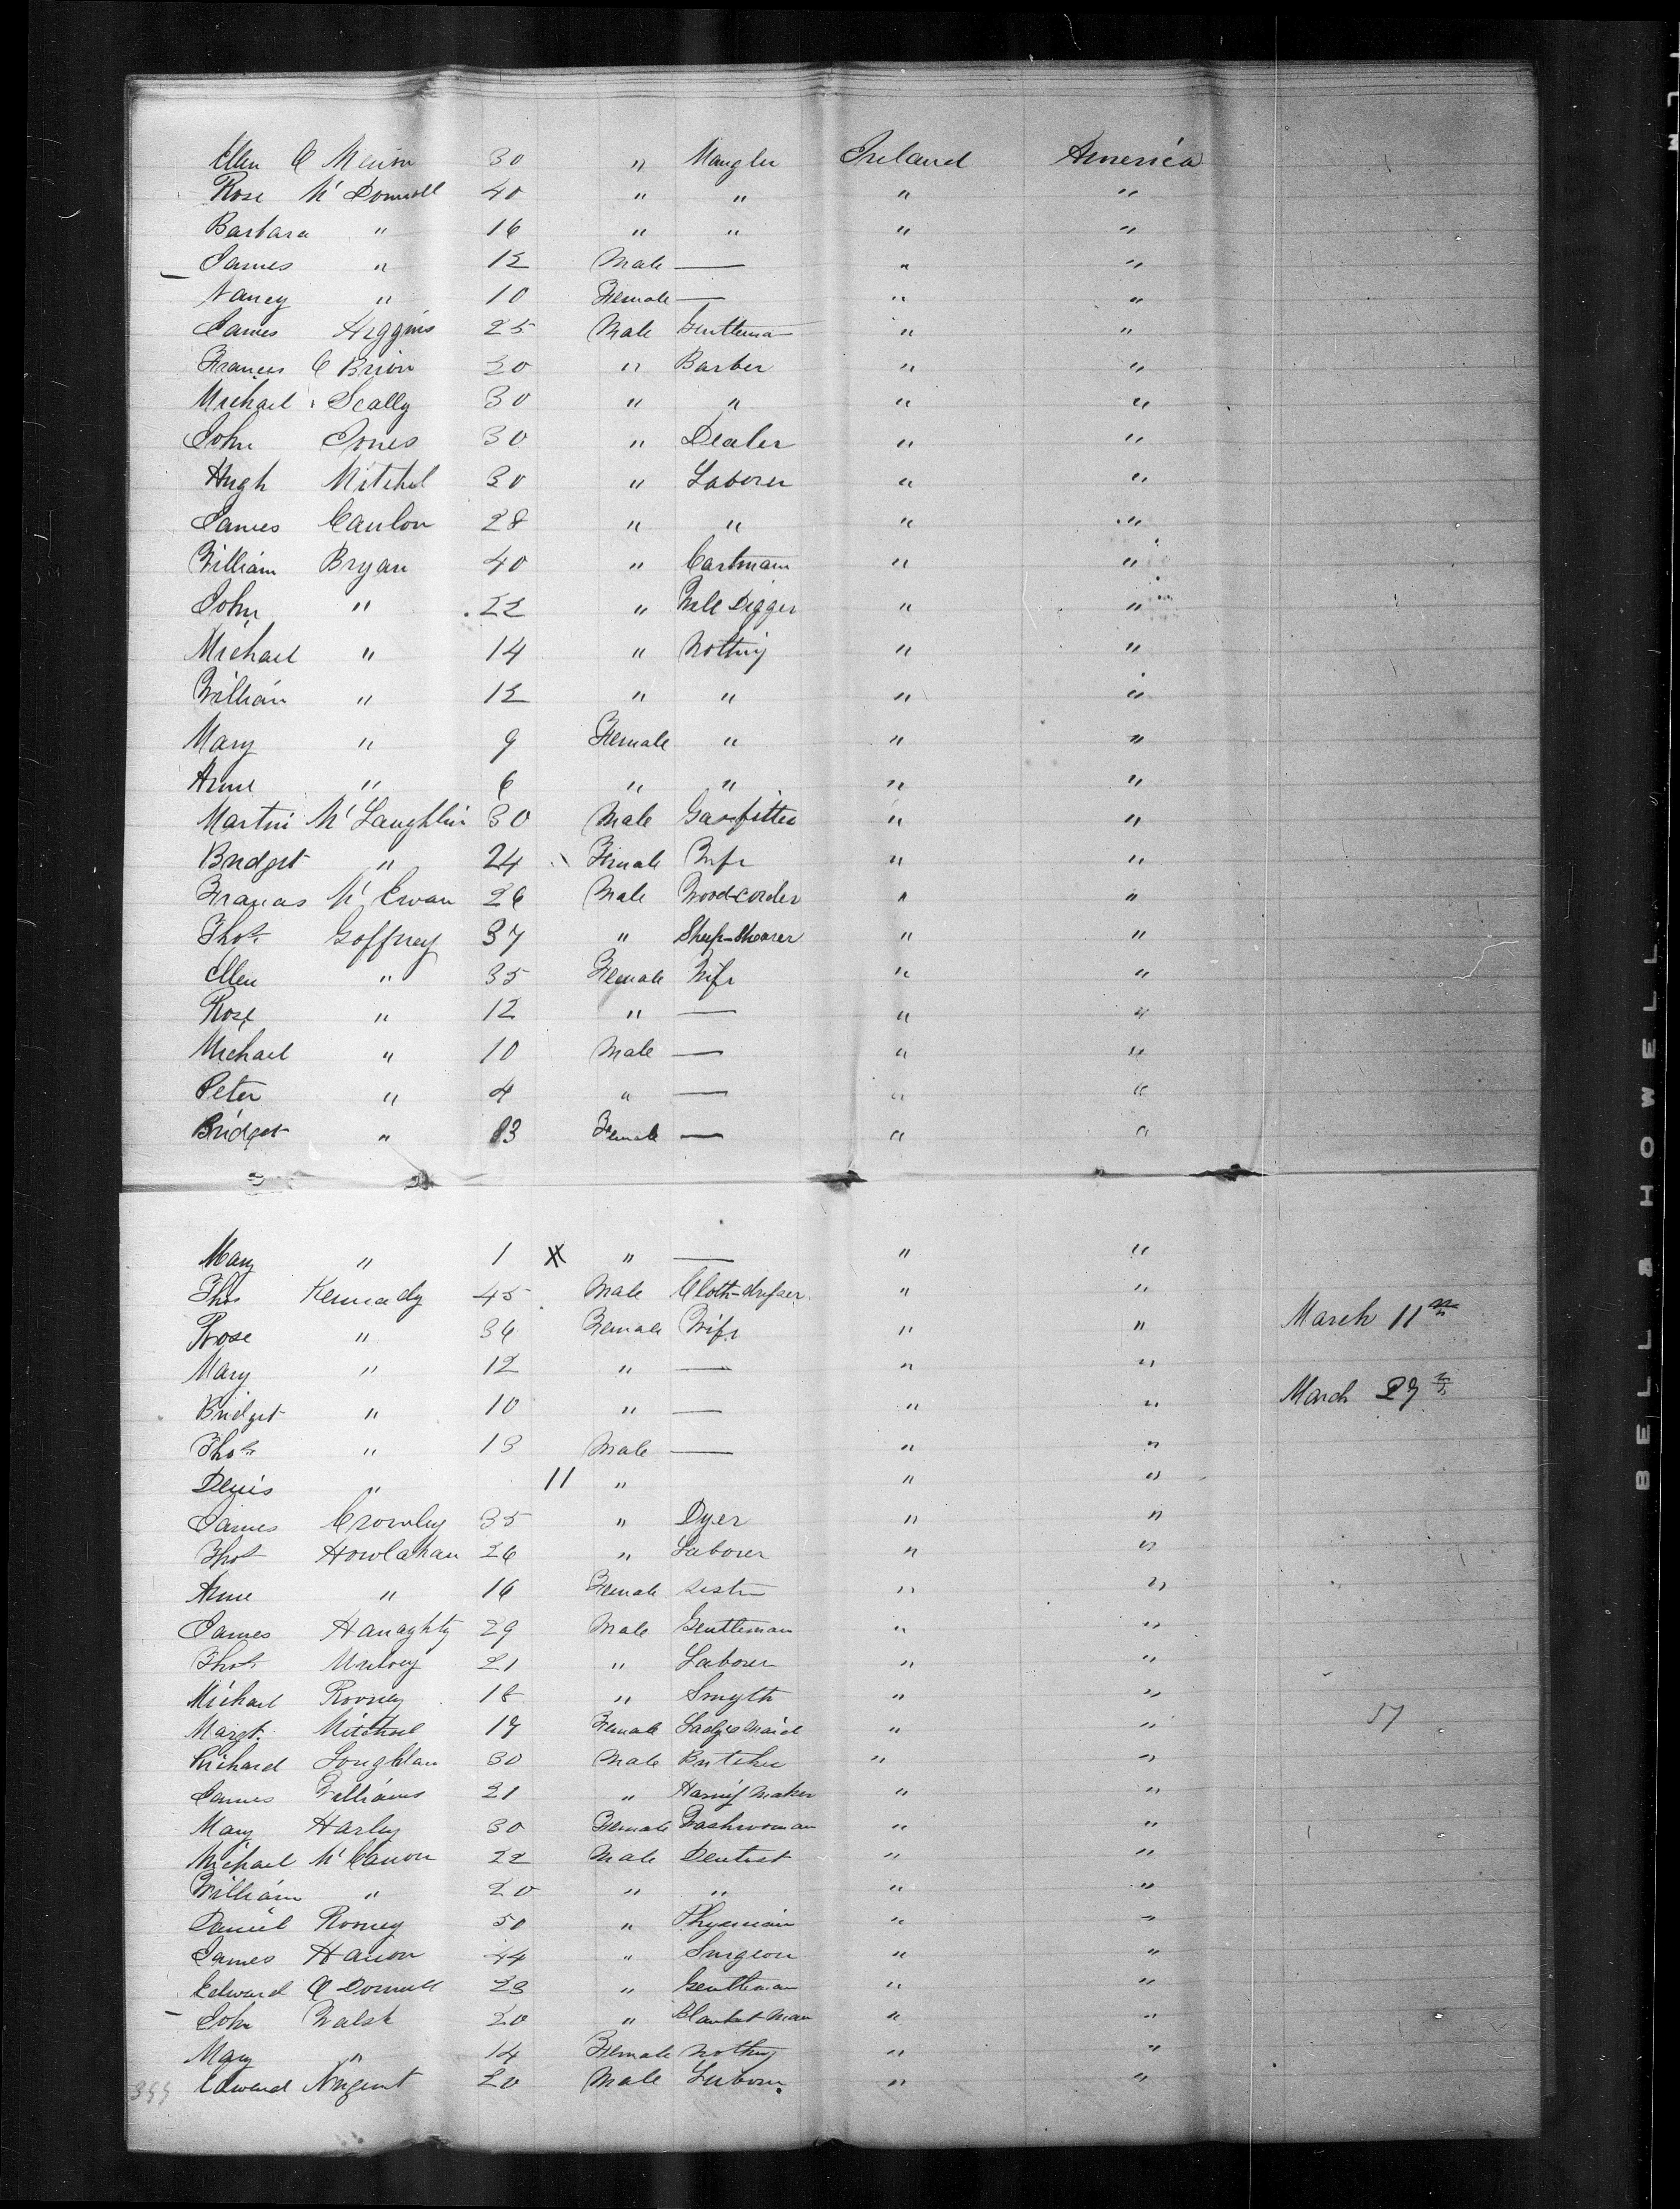 Ellen O'Merion 30 " Mangler Ireland America
Rose Mc Donnell 40 " " " "
Barbara " 16 " " " "
James " 12 Male — " "
Nancy " 10 Female — " "
James Higgins 25 Male Gentleman " "
Frances O Brion 30 " Barber " "
Michael Scally 30 " " " "
John Jones 30 " Dealer " "
Hugh Mitchel 30 " Laborer " "
James Canlon 28 " " " "
William Bryan 40 " Cartman " "
John " 22 " Well Digger " "
Michael " 14 " Nothing " "
William " 12 " " " "
Mary " 9 Female " " "
Anne " 6 " " " "
Martin Mc Laughlin 30 Male Gasfitter " "
Bridget " 24 Female Wife " "
Francas Mc Ewan 26 Male Wood-corder " "
Thos Goffney 37 " Sheep-Shearer " "
Ellen " 35 Female Wife " "
Rose " 12 " — " "
Michael " 10 Male — " "
Peter " 4 " — " "
Bridget " 83 Female — " "
Mary " 1 " — " "
Thos Kennedy 45 Male Cloth-dresser " "
March 11th
Rose " 36 Female Wife " "
Mary " 12 " — " "
March 27th
Bridget " 10 " — " "
Thos " 13 Male — " "
Denis " 11 " " "
James Crowley 35 " Dyer " "
Thos Howlahan 26 " Laborer " "
Anne " 16 Female Sister " "
James Hanaghty 29 Male Gentleman " "
Thos Mulvey 21 " Laborer " "
Michael Rooney 18 " Smyth " "
Margt. Mitchel 17 Female Ladys Maid " " 57
Richard Longhlan 30 Male Butcher " "
James Williams 21 " Harness Maker " "
Mary Harley 30 Female Washwoman " "
Michael Mc Canon 22 Male Dentist " "
William " 20 " " " "
Daniel Rooney 50 " Physician " "
James Hanon 44 " Surgeon " "
Edward O Donnell 23 " Gentleman " "
John Walsh 20 " Blanket Man " "
Mary " 14 Female Nothing " "
Edward Nugent 20 Male Laborer " "
BELL & HOWELL